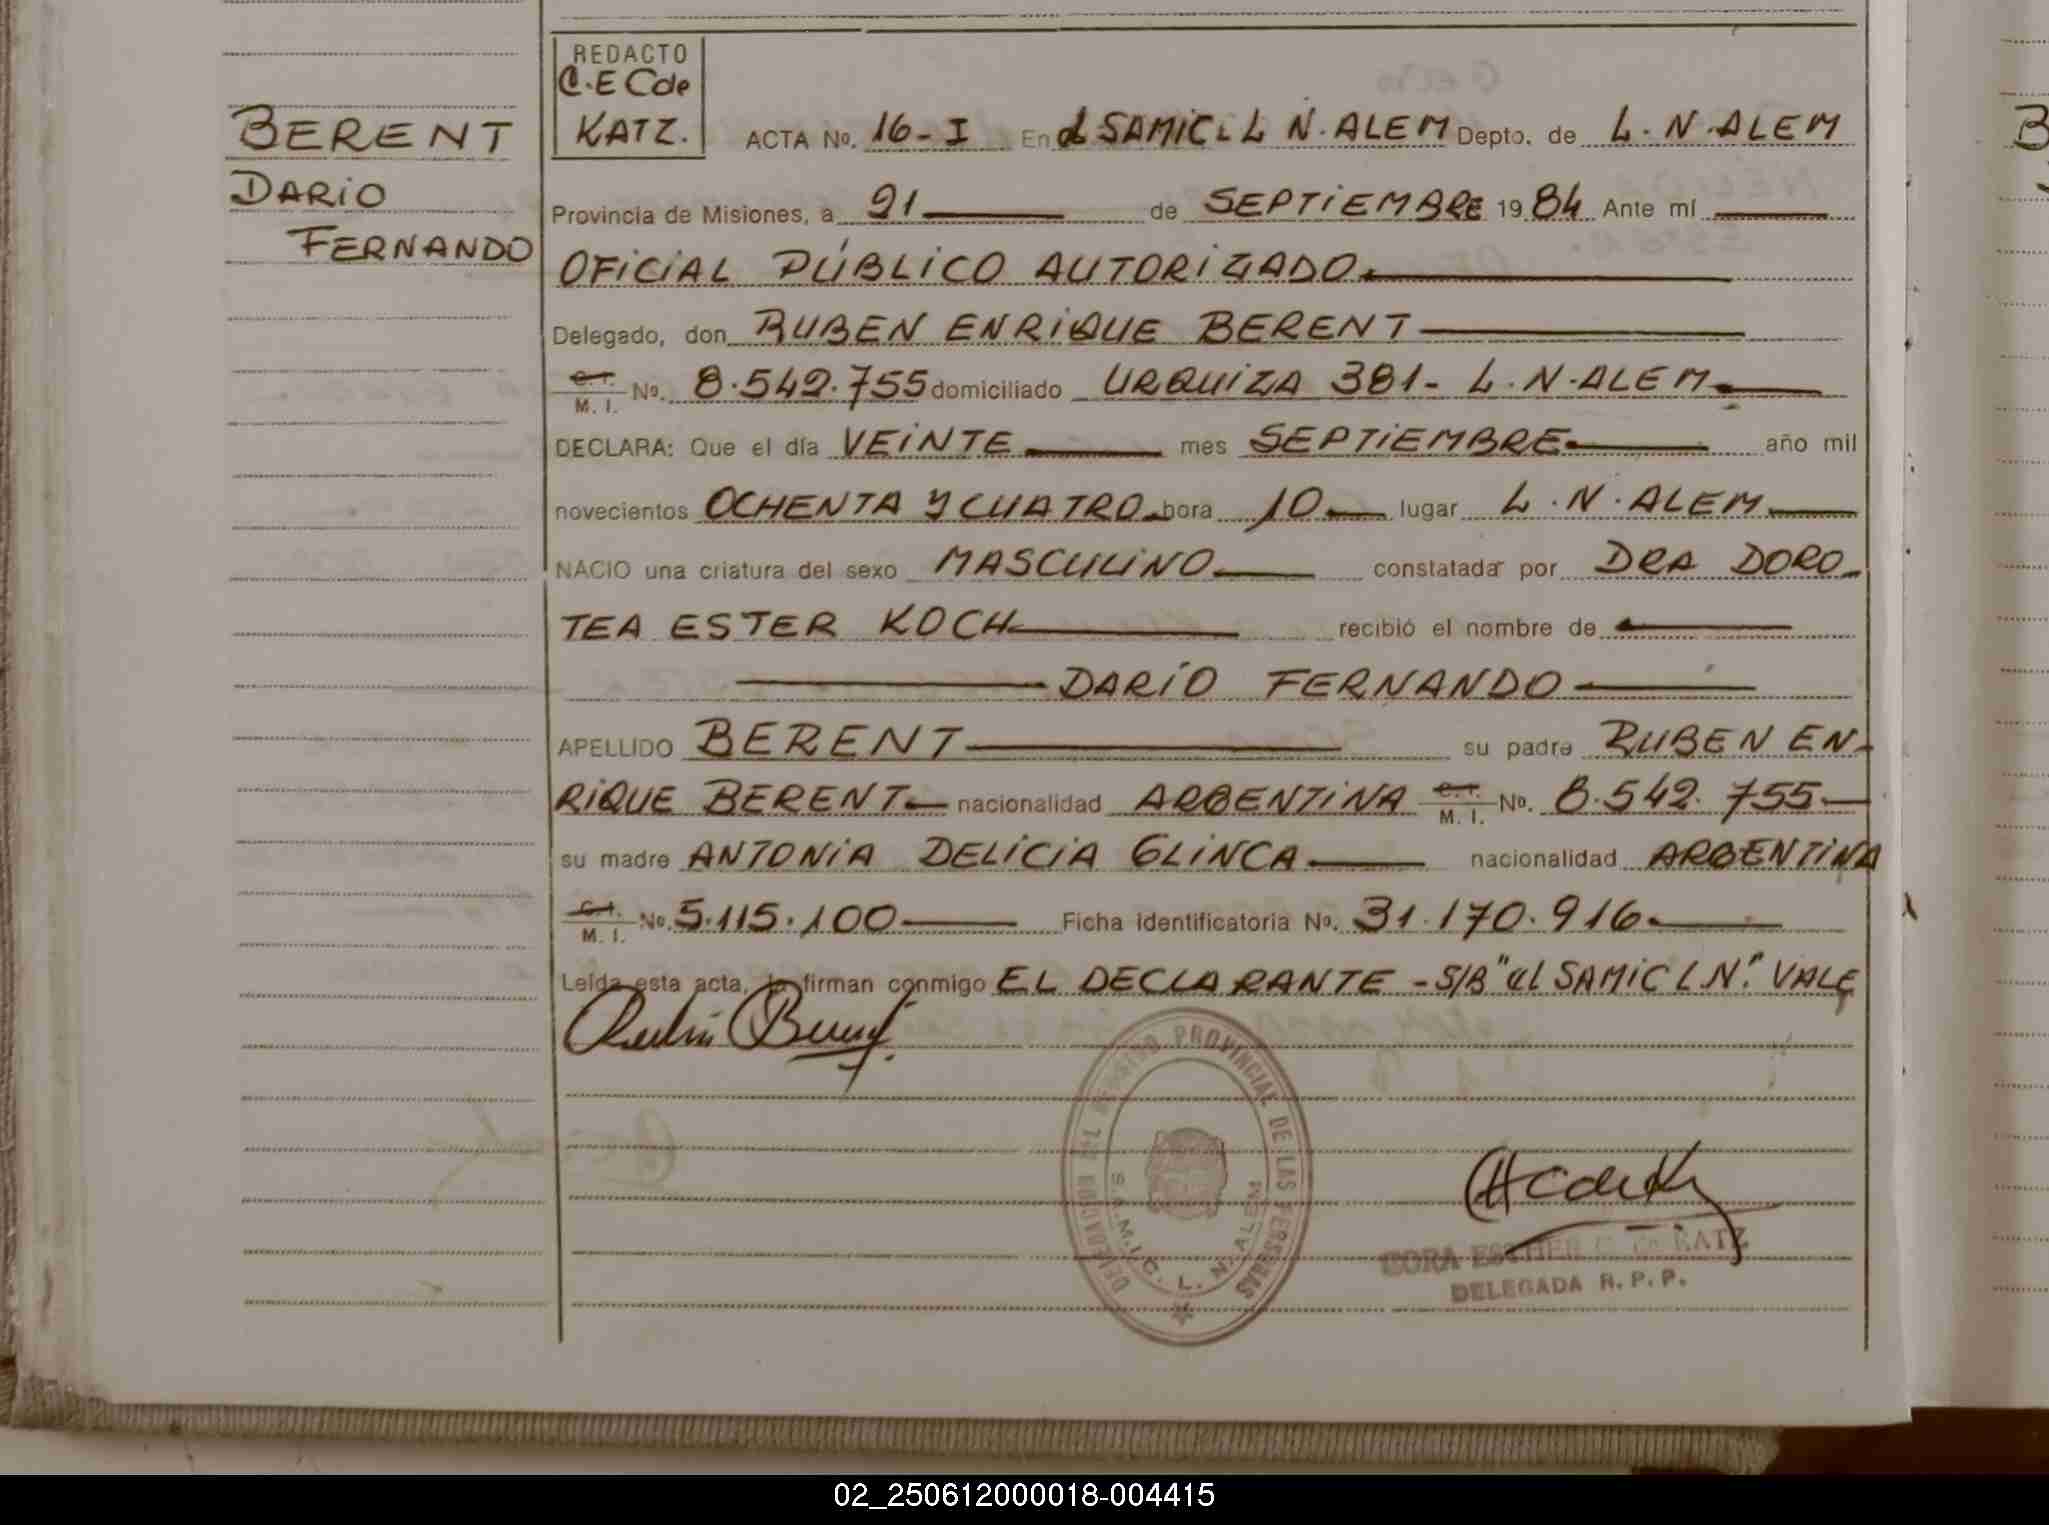 BERENT
DARIO
FERNANDO
REDACTO
C.E Cde
KATZ.
ACTA No. 16-I En el SAMIC. L N. ALEM Depto. de L. N. ALEM
Provincia de Misiones, a 21 de SEPTIEMBRE 1984 Ante mí
OFICIAL PÚBLICO AUTORIZADO.
Delegado, don RUBEN ENRIQUE BERENT
C. I. / M. I. No. 8.542.755 domiciliado URQUIZA 381- L. N. ALEM
DECLARA: Que el día VEINTE mes SEPTIEMBRE año mil
novecientos OCHENTA Y CUATRO hora 10 lugar L. N. ALEM
NACIO una criatura del sexo MASCULINO constatada por DRA DORO-
TEA ESTER KOCH recibió el nombre de
DARÍO FERNANDO
APELLIDO BERENT su padre RUBEN EN-
RIQUE BERENT nacionalidad ARGENTINA C. I. / M. I. No. 8.542.755
su madre ANTONIA DELICIA GLINCA nacionalidad ARGENTINA
C. I. / M. I. No. 5.115.100 Ficha identificatoria No. 31.170.916
Leída esta acta, la firman conmigo EL DECLARANTE - S/B "el SAMIC L N." VALE
DELEGACION DEL REGISTRO PROVINCIAL DE LAS PERSONAS
S.A.M.I.C. L. N. ALEM
CORA ESTHER C. de KATZ
DELEGADA R. P. P.
02_250612000018-004415